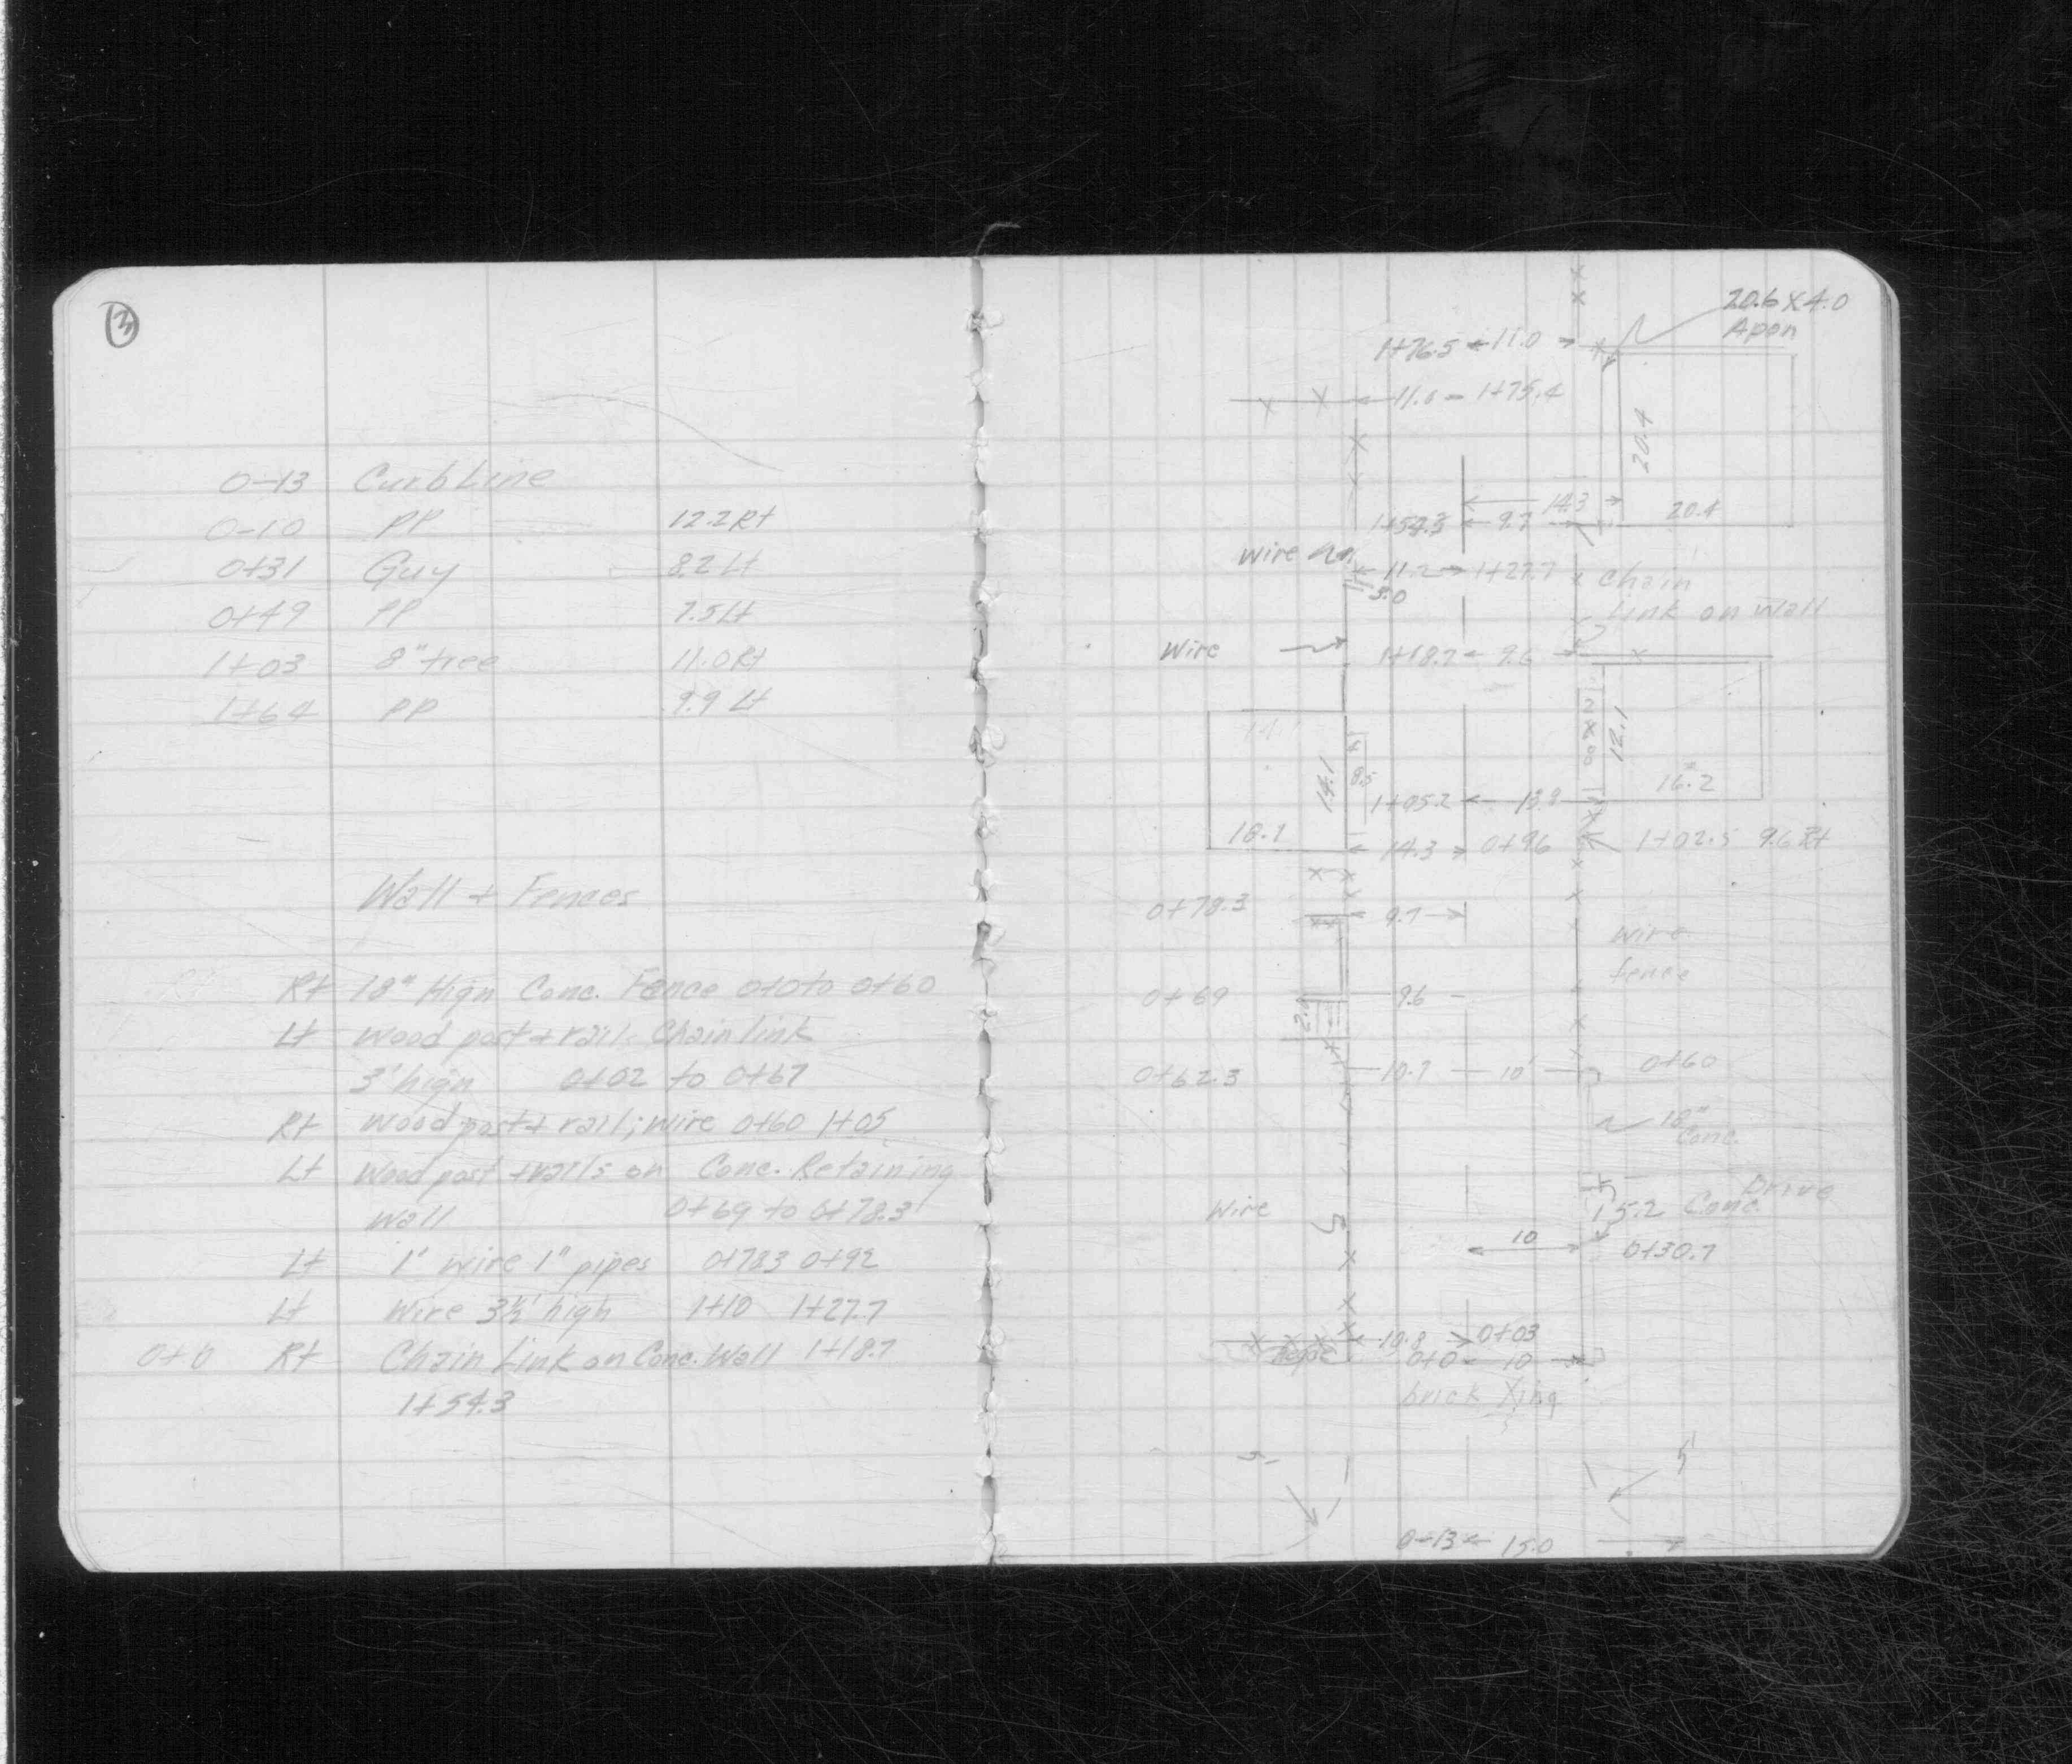 3
0-13 Curb Line
0-10 PP 12.2 Rt
0+31 Guy 8.2 Lt
0+49 PP 7.5 Lt
1+03 8" tree 11.0 Rt
1+64 PP 9.9 Lt
Wall + Fences
Rt 18" High Conc. Fence 0+0 to 0+60
Lt Wood post + rail. Chain link
3' high 0+02 to 0+67
Rt Wood post + rail; wire 0+60 1+05
Lt Wood post + rails on Conc. Retaining
Wall 0+69 to 0+78.3
Lt 1' wire 1" pipes 0+783 0+92
Lt Wire 3½' high 1+10 1+27.7
0+0 Rt Chain Link on Conc. Wall 1+18.7
1+54.3
20.6 x 4.0
Apon
1+76.5 11.0
11.6 1+75.4
20.4
14.3
1+54.3 9.7 20.4
Wire
11.2 1+27.7 Chain
3.0
Link on Wall
Wire 1+18.7 9.6
12.1
14.1 8.5
16.2
1+05.2 13.8
18.1
14.3 0+96 1+02.5 9.6 Rt
0+78.3 9.7
wire
fence
0+69 9.6
2.0
0+62.3 10.7 10' 0+60
18"
Conc.
Drive
Wire 15.2 Conc.
10 0+30.7
10.8 0+03
0+0 10
brick Xing
5'
0-13 15.0